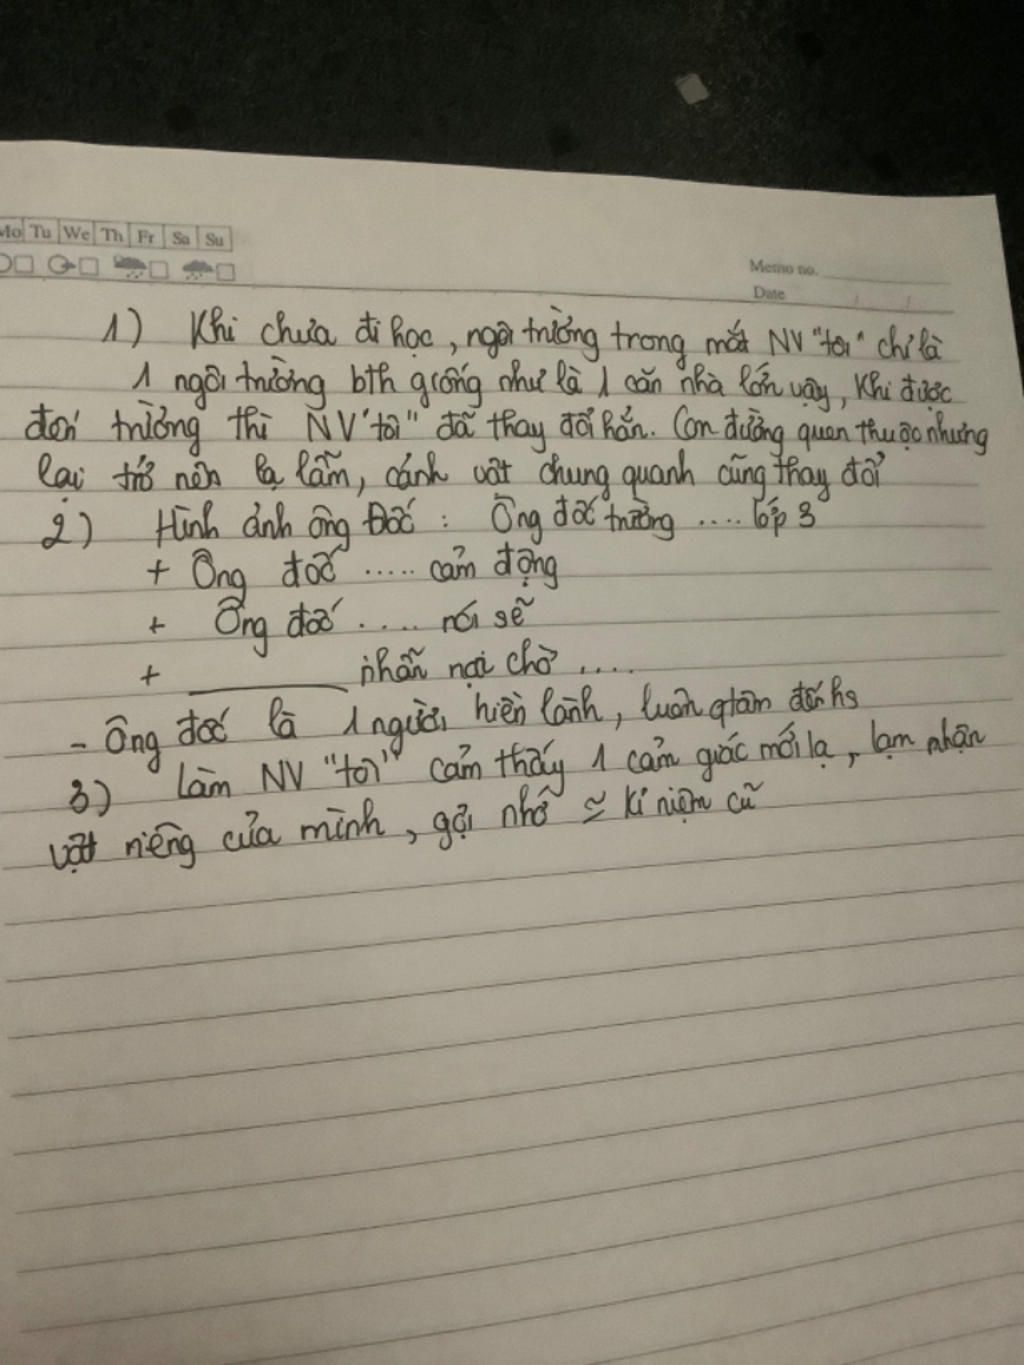 Mo Tu We Th Fr Sa Su
Memo no.
Date
1) Khi chưa đi học, ngôi trường trong mắt NV "tôi" chỉ là
1 ngôi trường bth giống như là 1 căn nhà lớn vậy, Khi được
đến trường thì NV "tôi" đã thay đổi hẳn. Con đường quen thuộc nhưng
lại trở nên lạ lẫm, cảnh vật chung quanh cũng thay đổi
2) Hình ảnh ông Đốc : Ông đốc trường .... lớp 3
+ Ông đốc ..... cảm động
+ Ông đốc .... nói sẽ
+ ______ nhẫn nại chờ ....
- Ông đốc là 1 người hiền lành, luôn qtâm đến hs
3) Làm NV "tôi" cảm thấy 1 cảm giác mới lạ, lạm nhận
vật riêng của mình, gợi nhớ ≈ kỉ niệm cũ